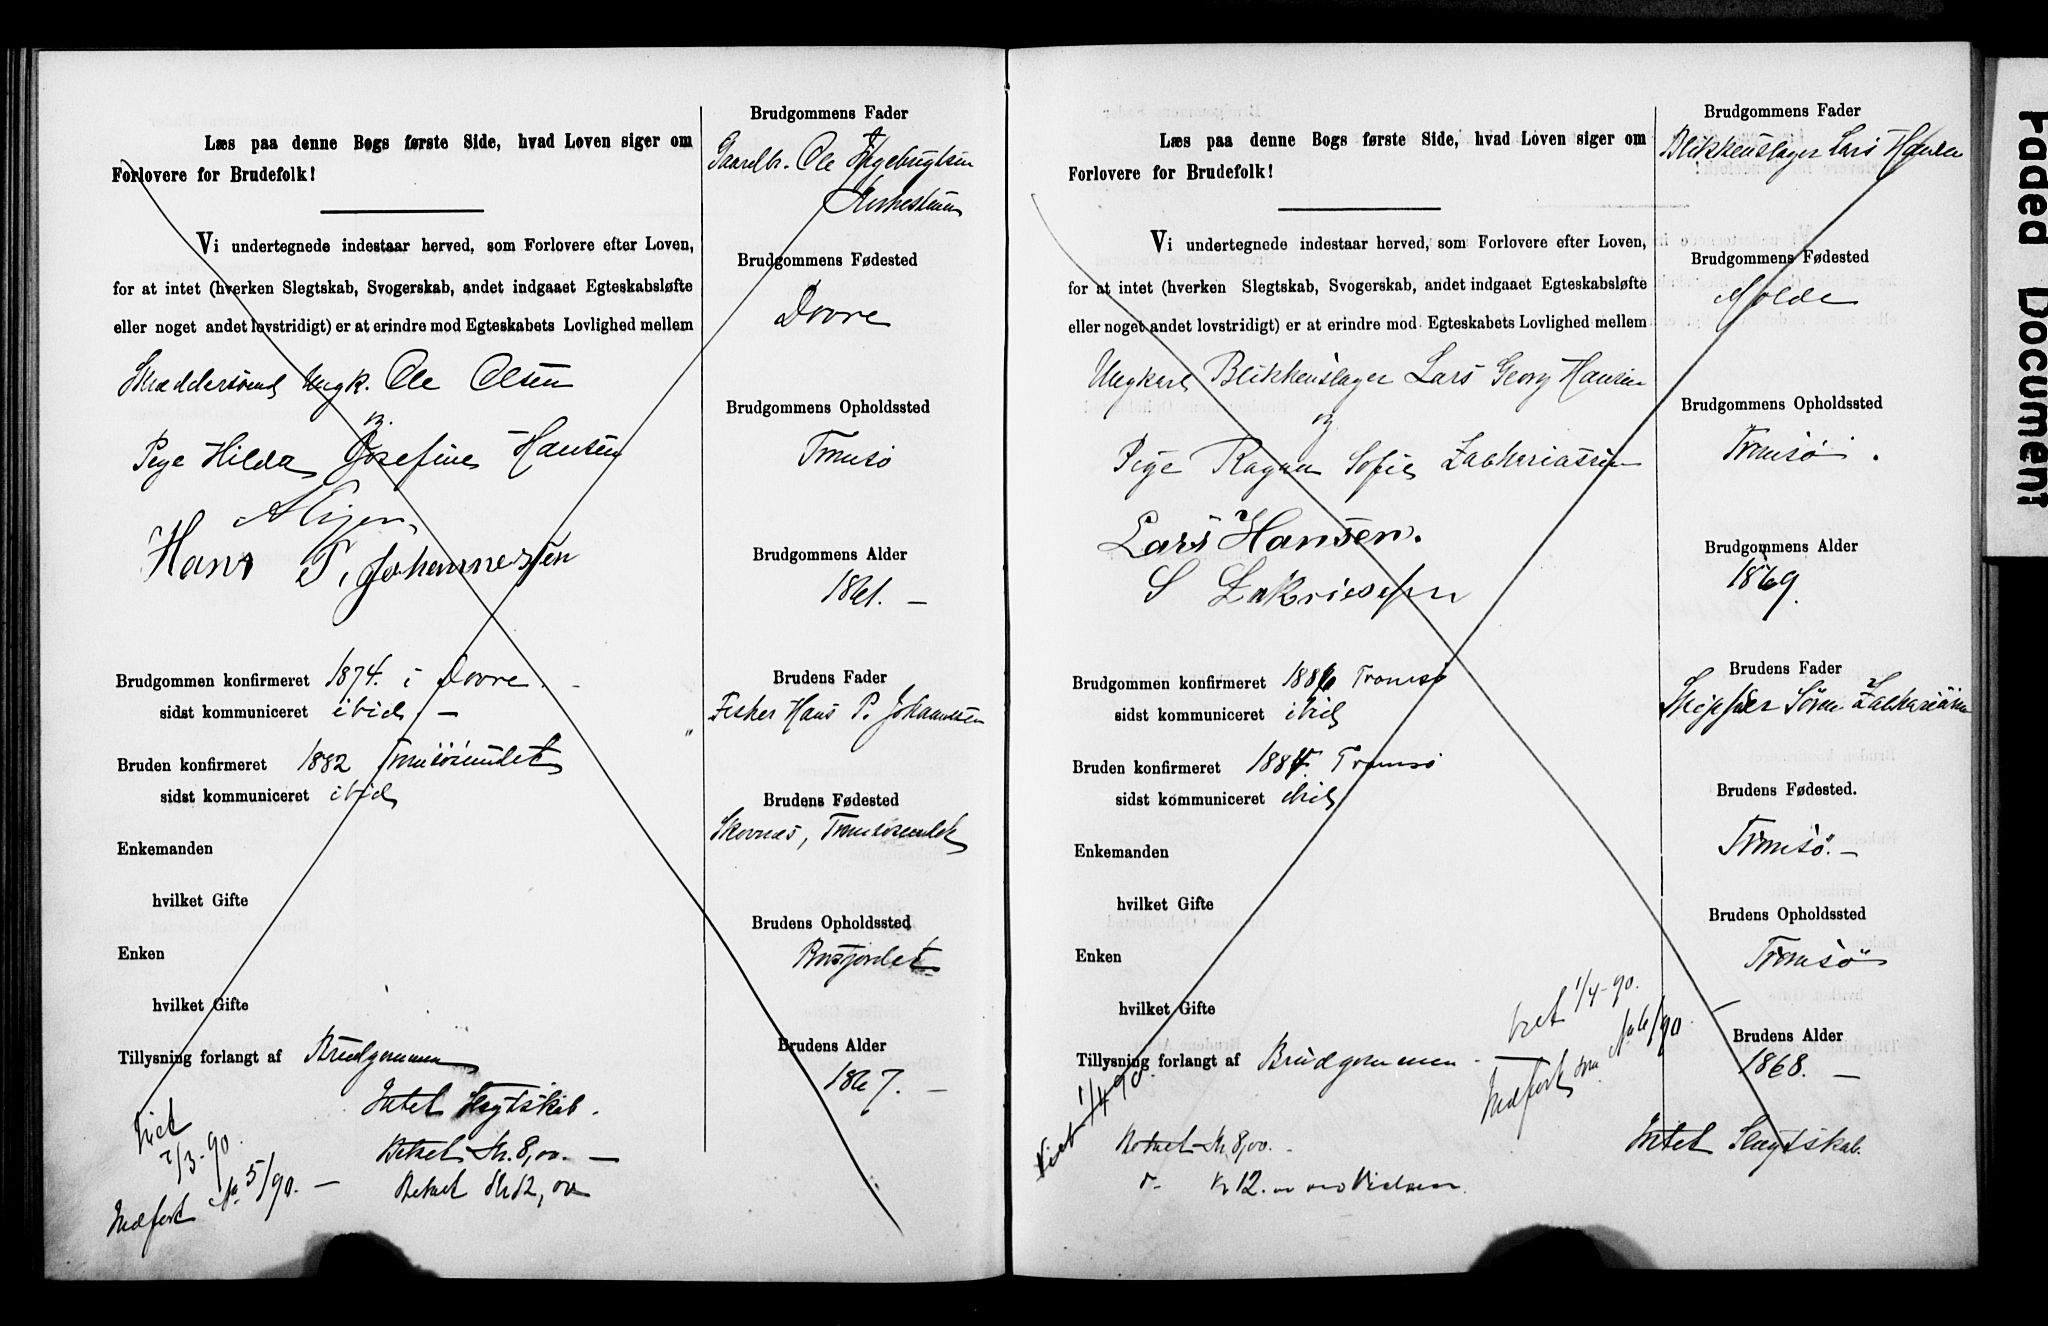 Læs paa denne Bogs første Side, hvad Loven siger om
Forlovere for Brudefolk!
Vi undertegnede indestaar herved, som Forlovere efter Loven,
for at intet (hverken Slegtskab, Svogerskab, andet indgaaet Egteskabsløfte
eller noget andet lovstridigt) er at erindre mod Egteskabets Lovlighed mellem
Skræddersvend Ungk. Ole Olsen
og
Pige Hilda Josefine Hansen
Hans P. Johannessen
Brudgommen konfirmeret 1874. i Dovre.
sidst kommuniceret ibid
Bruden konfirmeret 1882 Tromsøsundet
sidst kommuniceret ibid
Enkemanden
hvilket Gifte
Enken
hvilket Gifte
Tillysning forlangt af Brudgommen
Intet Slegtskab.
Betalt Kr. 8,00. —
Betalt Kr 12,00
Viet
2/3-90.
Indført No 5/90. —
Brudgommens Fader
Gaardbr. Ole
Brudgommens Fødested
Dovre
Brudgommens Opholdssted
Tromsø
Brudgommens Alder
1861. —
Brudens Fader
Fisker Hans P. Johannesen
Brudens Fødested
Skovnæs, Tromsøsundet
Brudens Opholdssted
Brudens Alder
1867. —
Læs paa denne Bogs første Side, hvad Loven siger om
Forlovere for Brudefolk!
Vi undertegnede indestaar herved, som Forlovere efter Loven,
for at intet (hverken Slegtskab, Svogerskab, andet indgaaet Egteskabsløfte
eller noget andet lovstridigt) er at erindre mod Egteskabets Lovlighed mellem
Ungkarl Blikkenslager Lars Georg Hansen
og
Pige Ragna Sofie Zachariassen
Lars Hansen.
S Zakriesen
Brudgommen konfirmeret 1886 Tromsø
sidst kommuniceret ibid
Bruden konfirmeret 1884. Tromsø
sidst kommuniceret ibid
Enkemanden
hvilket Gifte
Enken
hvilket Gifte
Tillysning forlangt af Brudgommen
Viet 1/4-90.
Indført No 6/90
Viet 1/4 90.
Betalt Kr 8,00.
Kr 12. ved Vielsen.
Intet Slegtskab.
Brudgommens Fader
Blikkenslager Lars Hansen
Brudgommens Fødested
Molde
Brudgommens Opholdssted
Tromsø.
Brudgommens Alder
1869.
Brudens Fader
Skipper Søren Zachariasen
Brudens Fødested.
Tromsø. —
Brudens Opholdssted
Tromsø
Brudens Alder
1868. —
Faded Document